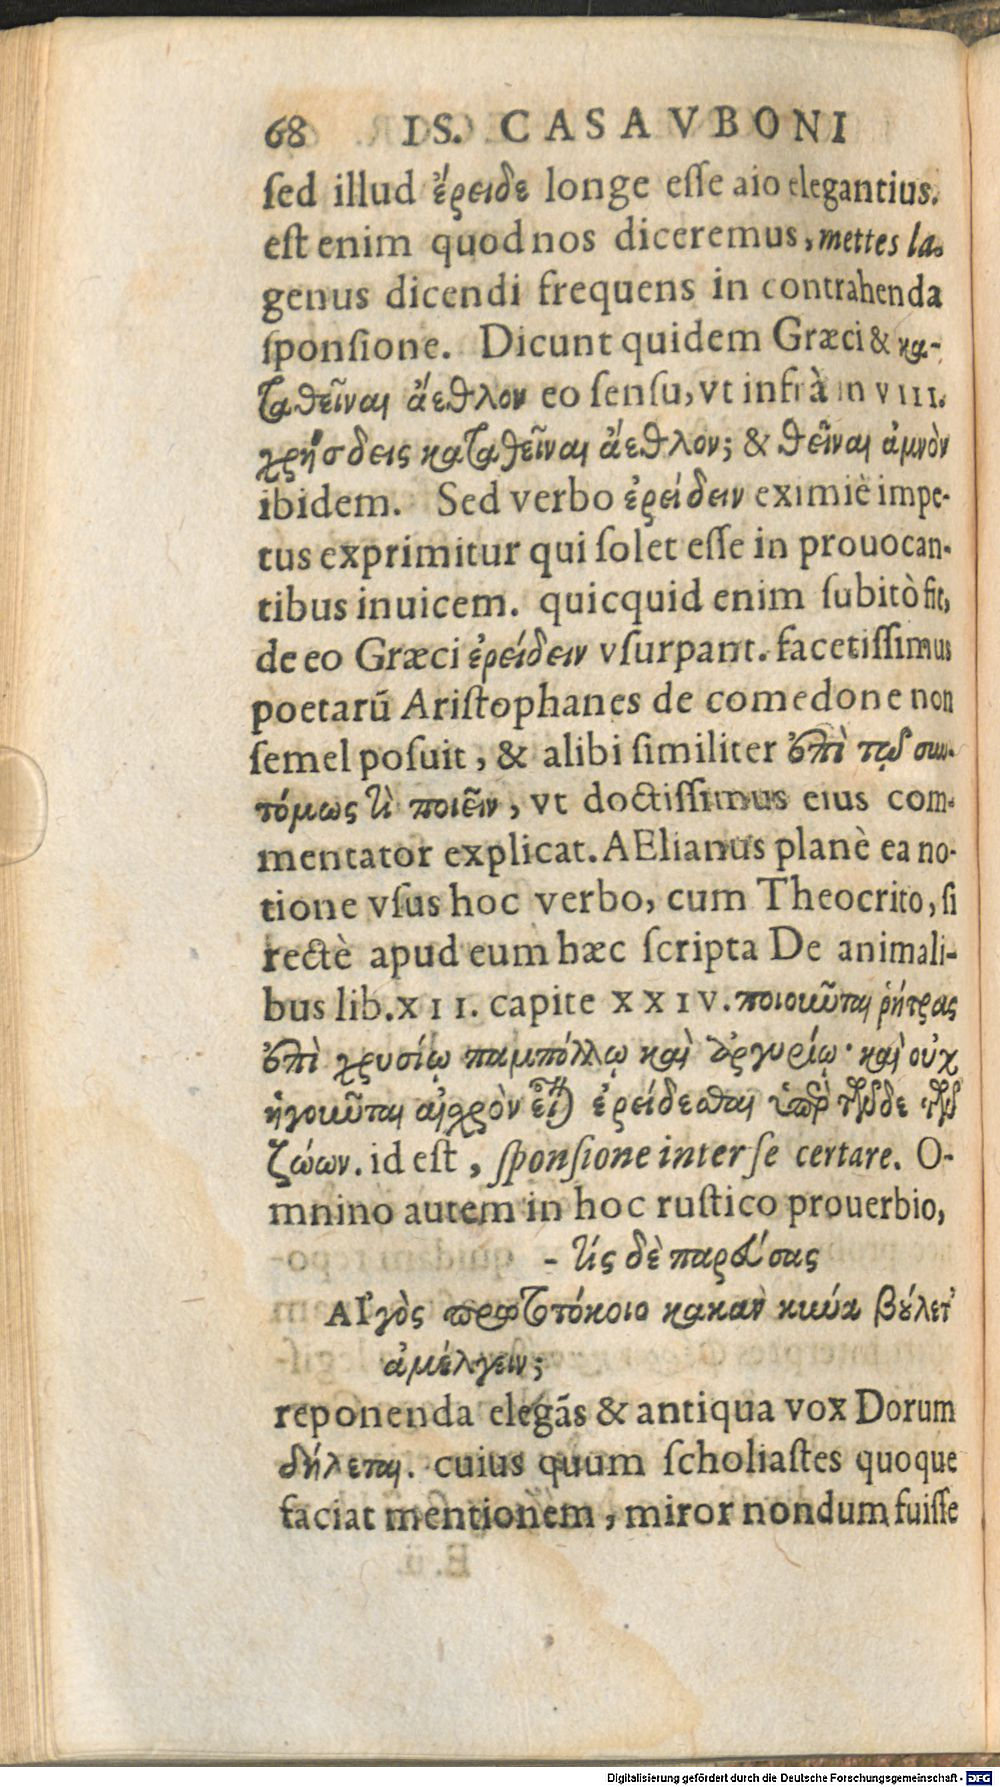 68 IS. CASAVBONI
ſed illud ἔρειδε longe eſſe aio elegantius.
eſt enim quod nos diceremus, mettes la.
genus dicendi frequens in contrahenda
ſponſione. Dicunt quidem Græci & κα-
ταθεῖναι ἄεθλον eo ſenſu, vt infrà in VIII.
χρῄσδεις καταθεῖναι ἄεθλον; & θεῖναι ἀμνὸν
ibidem. Sed verbo ἐρείδειν eximiè impe-
tus exprimitur qui ſolet eſſe in prouocan-
tibus inuicem. quicquid enim ſubitò fit,
de eo Græci ἐρείδειν vſurpant. facetiſſimus
poetarũ Ariſtophanes de comedone non
ſemel poſuit, & alibi ſimiliter ἐπὶ τῷ συν-
τόμως τὶ ποιεῖν, vt doctiſſimus eius com-
mentator explicat. AElianus planè ea no-
tione vſus hoc verbo, cum Theocrito, ſi
rectè apud eum hæc ſcripta De animali-
bus lib. XII. capite XXIV. ποιοῦνται ῥήτρας
ἐπὶ χρυσίῳ παμπόλλῳ καὶ ἀργυρίῳ· καὶ οὐχ
ἡγοῦνται αἰσχρὸν εἶναι ἐρείδεσθαι ὑπὲρ τῶνδε τῶν
ζώων. id eſt, ſponſione inter ſe certare. O-
mnino autem in hoc ruſtico prouerbio,
- τίς δὲ παρεύσας
ΑΙ῎γὸς πρωτοτόκοιο κακὰν κύνα βούλετ᾽
ἀμέλγειν;
reponenda elegãs & antiqua vox Dorum
δήλεται. cuius quum ſcholiaſtes quoque
faciat mentionem, miror nondum fuiſſe
Digitalisierung gefördert durch die Deutsche Forschungsgemeinschaft - DFG